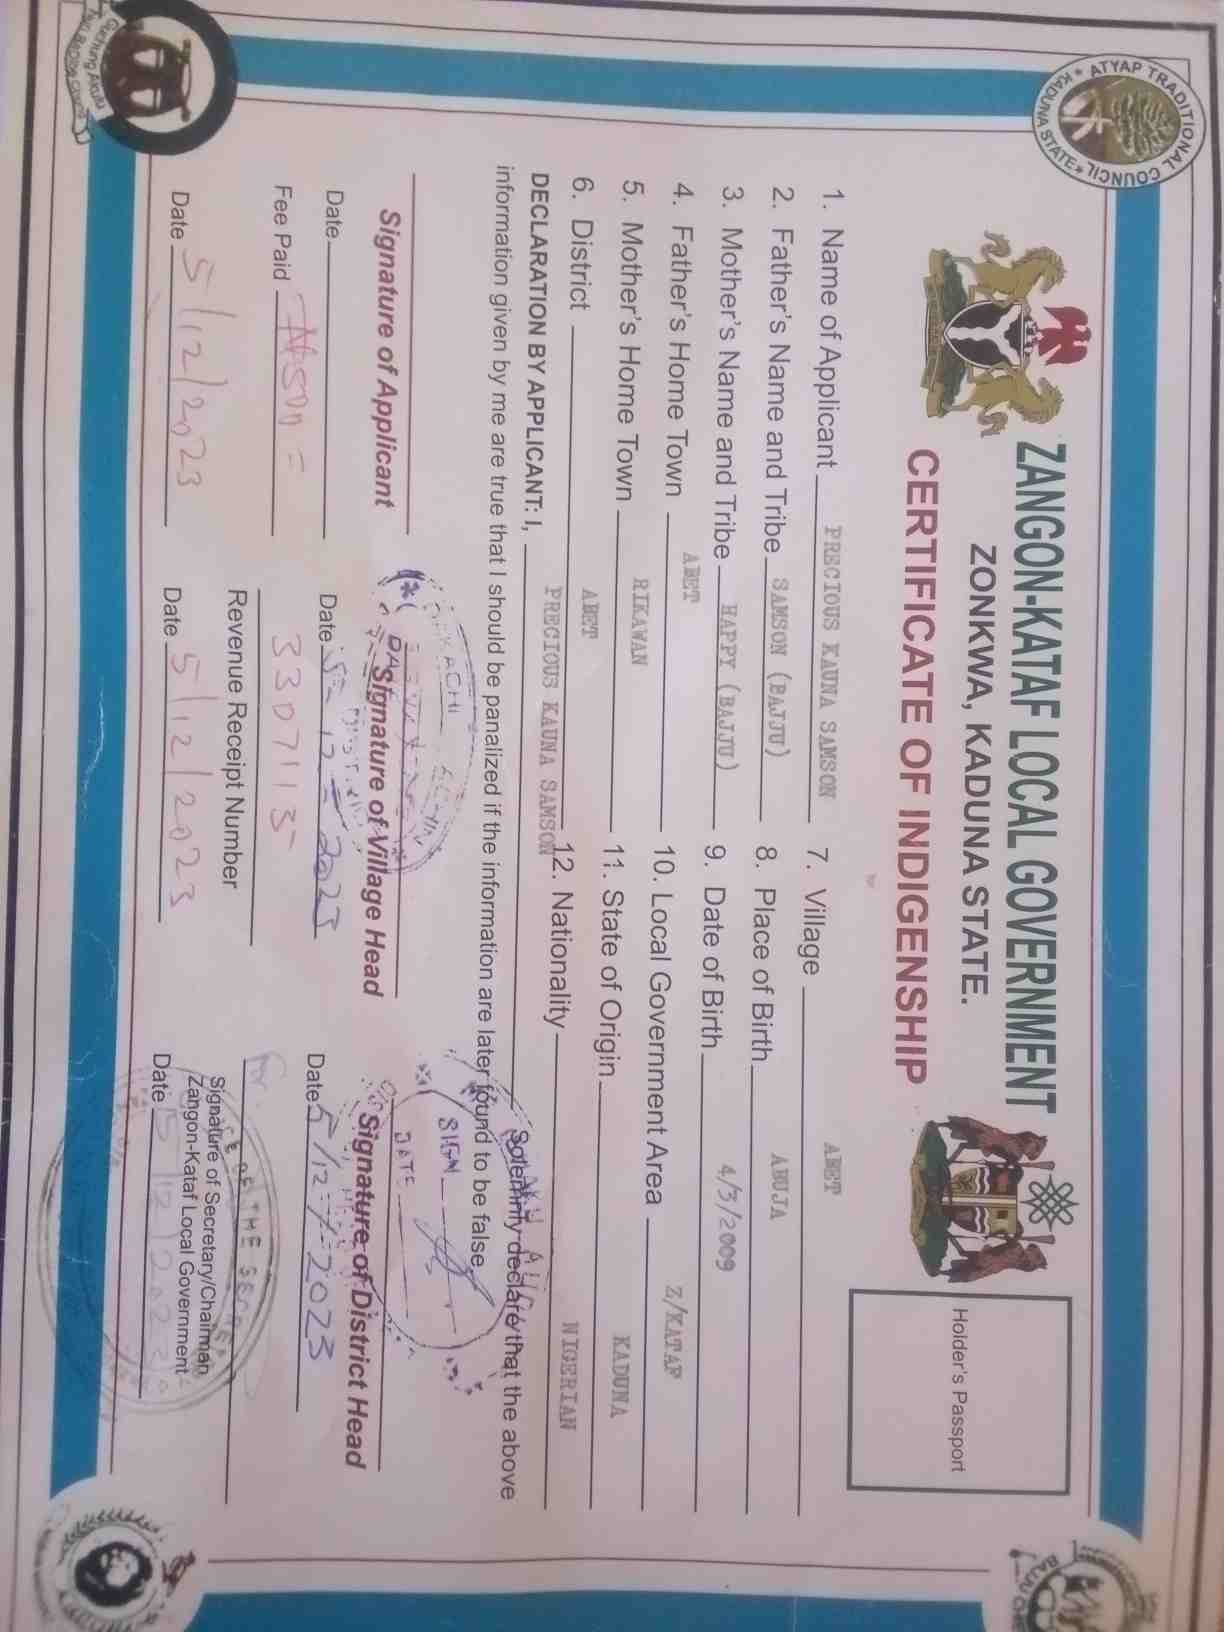 ATYAP TRADITIONAL COUNCIL
KADUNA STATE
ZANGON-KATAF LOCAL GOVERNMENT
ZONKWA, KADUNA STATE.
CERTIFICATE OF INDIGENSHIP
Holder's Passport
1. Name of Applicant PRECIOUS KAUNA SAMSON
2. Father's Name and Tribe SAMSON (BAJJU)
3. Mother's Name and Tribe HAPPY (BAJJU)
4. Father's Home Town ABET
5. Mother's Home Town RIKAWAN
6. District ABET
7. Village ABET
8. Place of Birth ABUJA
9. Date of Birth 4/3/2009
10. Local Government Area Z/KATAF
11. State of Origin KADUNA
12. Nationality NIGERIAN
DECLARATION BY APPLICANT: I, PRECIOUS KAUNA SAMSON Solemnly declare that the above
information given by me are true that I should be panalized if the information are later found to be false.
SIGN
DATE
Signature of Applicant
Signature of Village Head
Signature of District Head
Date
Date 5-12-2023
Date 5/12/2023
Fee Paid ₦500=
3307113
Revenue Receipt Number
for
Signature of Secretary/Chairman
Zangon-Kataf Local Government
Date 5/12/2023
Date 5/12/2023
Date 5/12/2023
OF THE